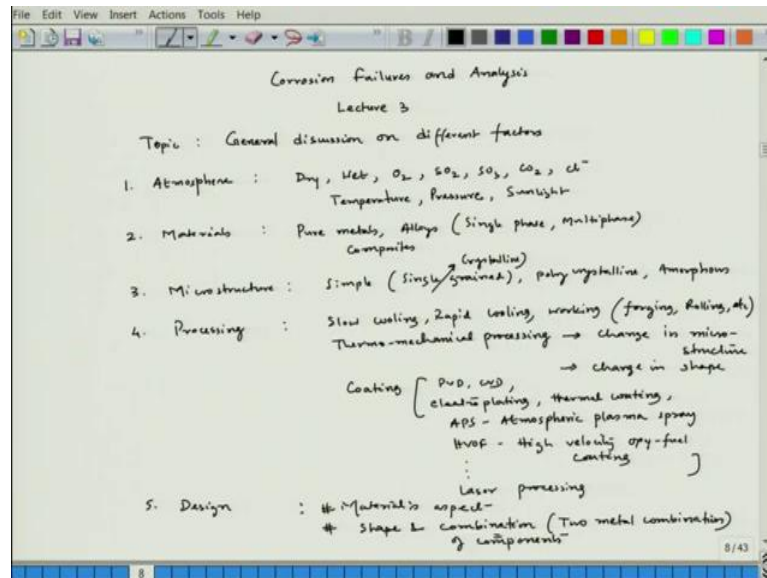 File Edit View Insert Actions Tools Help
Corrosion Failures and Analysis
Lecture 3
Topic : General discussion on different factors
1. Atmosphere : Dry, Wet, O2, SO2, SO3, CO2, Cl-
Temperature, Pressure, Sunlight
2. Materials : Pure metals, Alloys (Single phase, Multiphase)
Composites
(crystalline)
3. Microstructure : Simple (Single grained), poly crystalline, Amorphous
4. Processing : Slow cooling, Rapid cooling, working (forging, Rolling, etc)
Thermo-mechanical processing → change in micro-
structure
→ change in shape
Coating [ PVD, CVD,
electroplating, thermal coating,
APS - Atmospheric plasma spray
HVOF - High velocity oxy-fuel
coating
⋮ ]
Laser processing
5. Design : # Material's aspect-
# Shape & combination (Two metal combination)
of components
8/43
8